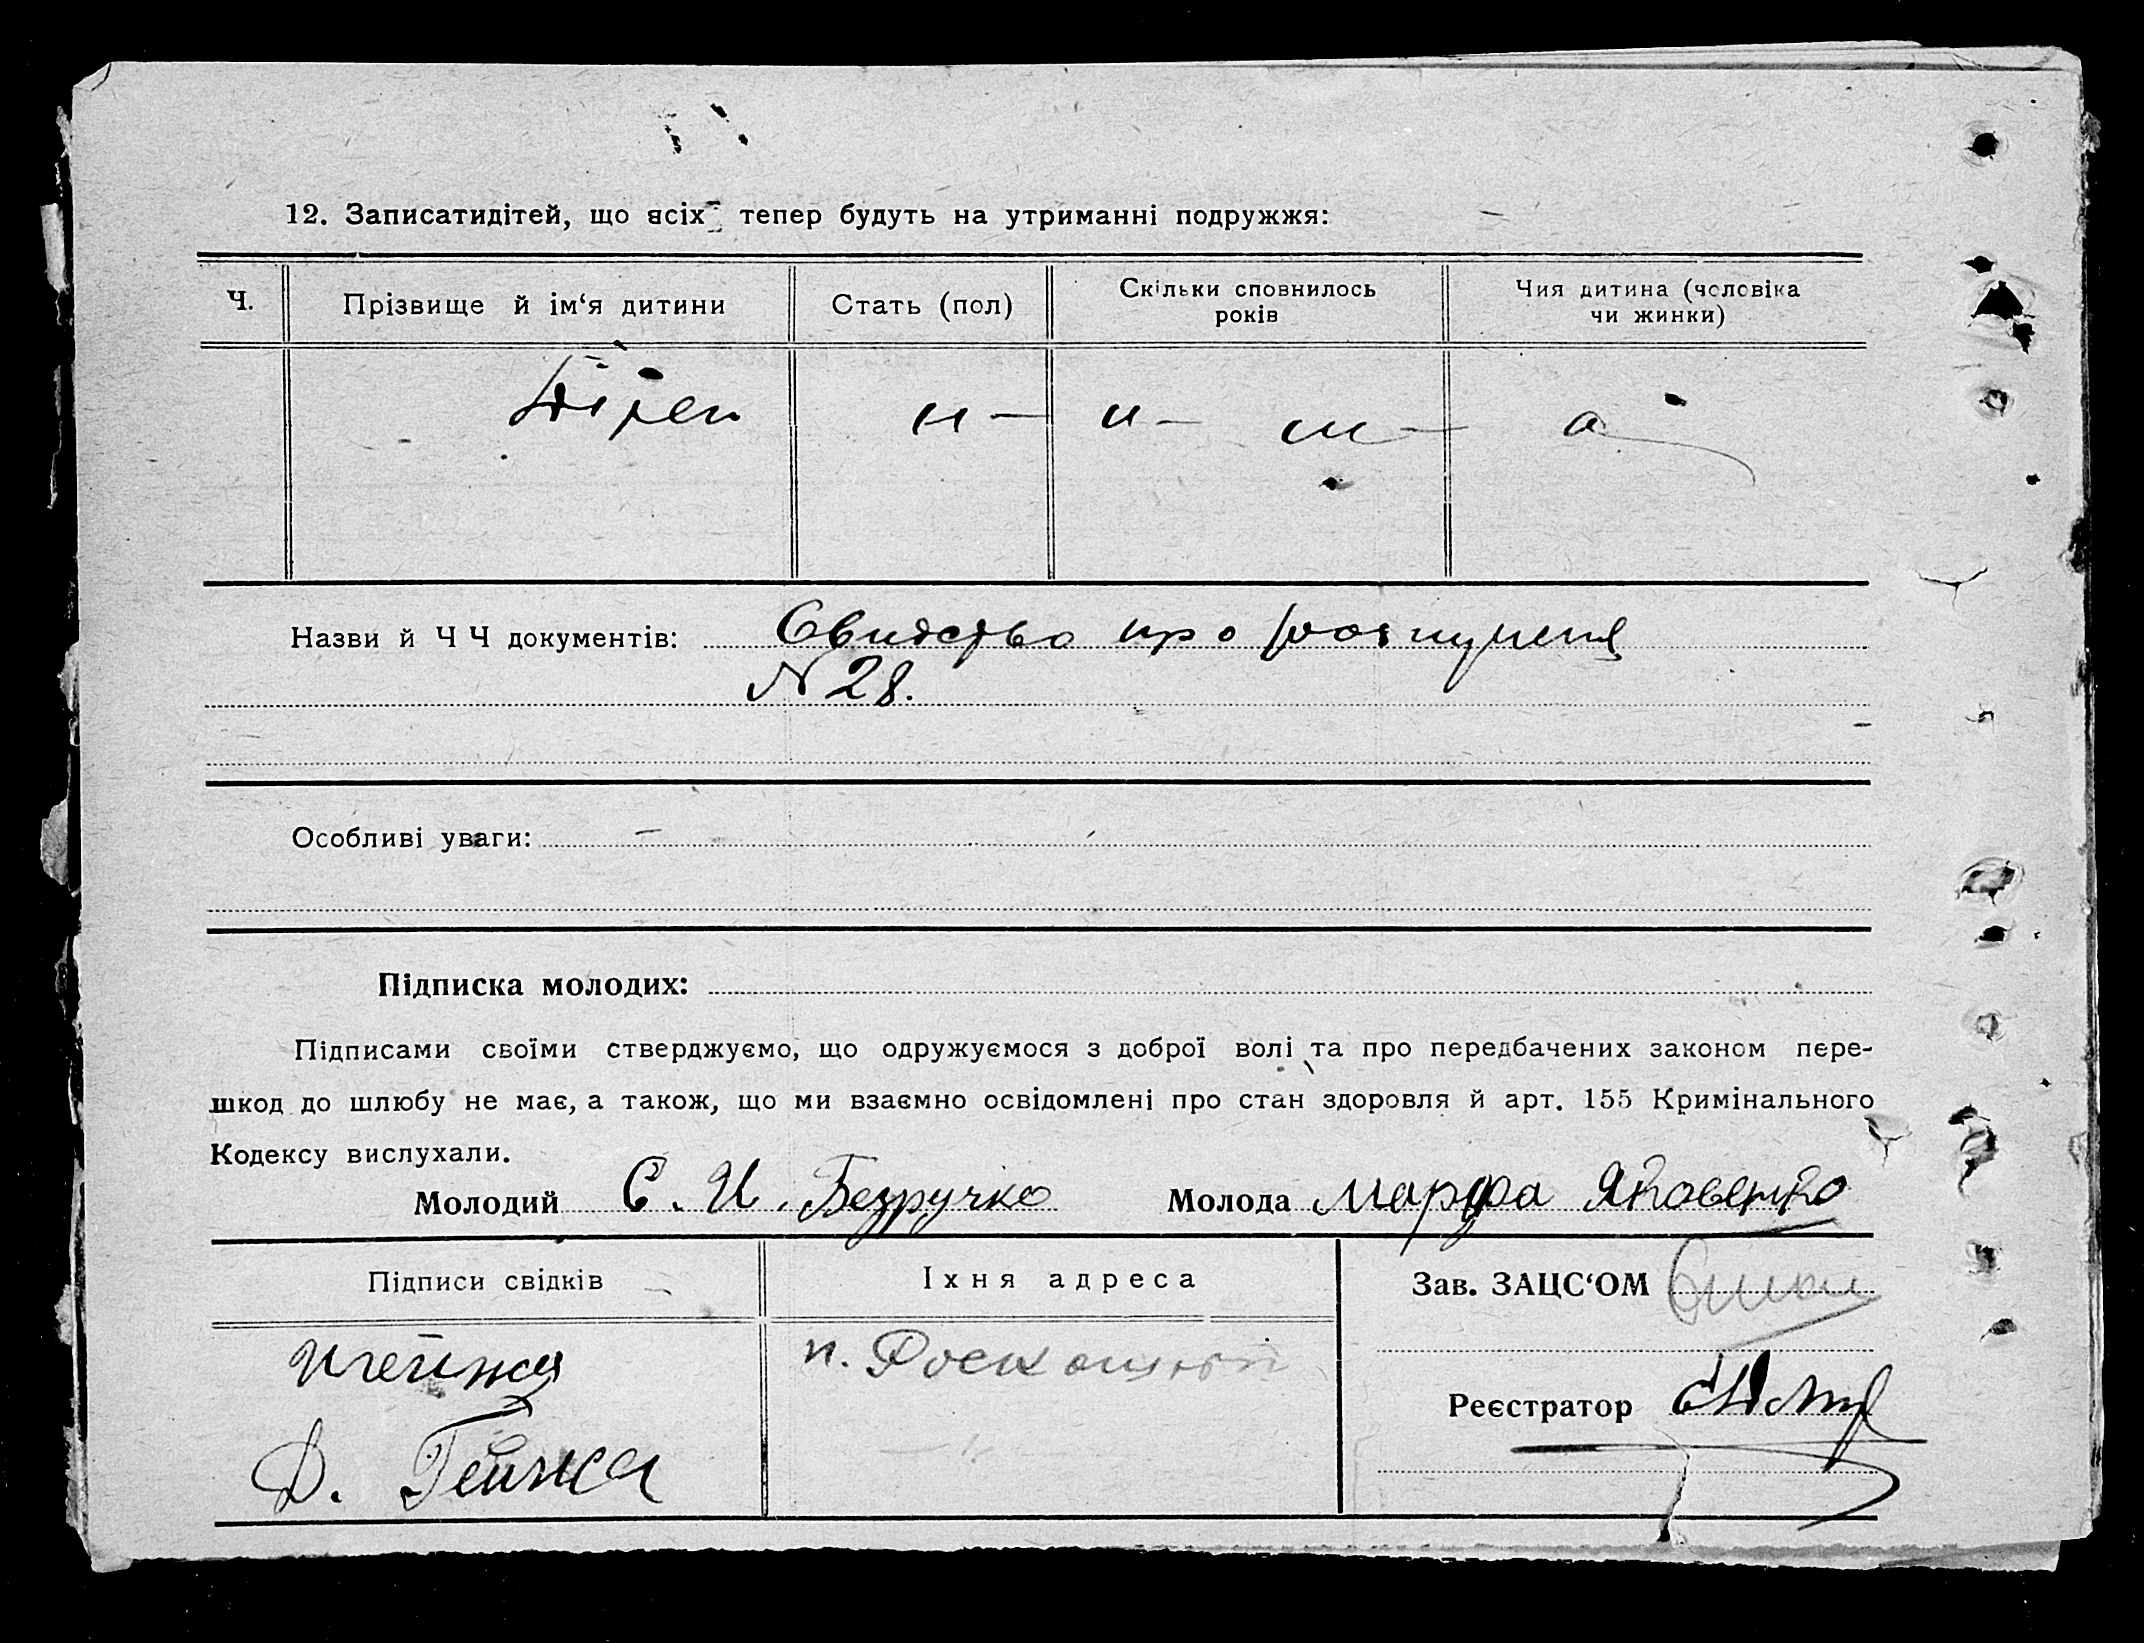 12. Записатидітей, що всіх тепер будуть на утриманні подружжя:
Ч. Прізвище й ім‘я дитини Стать (пол) Скільки сповнилось років Чия дитина (чоловіка чи жинки)
н — н — а
Назви й Ч Ч документів: Свидство про
№ 28.
Особливі уваги: —
Підписка молодих:
Підписами своїми стверджуємо, що одружуємося з доброї волі та про передбачених законом пере-
шкод до шлюбу не має, а також, що ми взаємно освідомлені про стан здоровля й арт. 155 Кримінального
Кодексу вислухали.
Молодий С. И. Безручко Молода Марфа Яковенко
Підписи свідків Їхня адреса Зав. ЗАЦС‘ОМ
п.
Реєстратор
Д. Гейжа